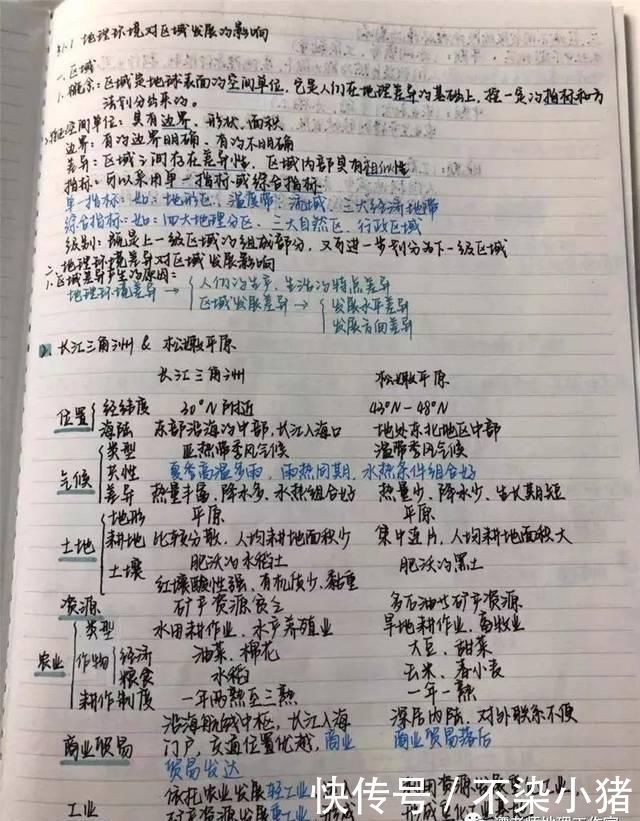 §1.1 地理环境对区域发展的影响
一、区域
1.概念：区域是地球表面的空间单位，它是人们在地理差异的基础上，按一定的指标和方
法划分出来的。
空间单位：具有边界、形状、面积
边界：有的边界明确，有的不明确
差异：区域之间存在差异性，区域内部具有相似性
指标：可以采用单一指标或综合指标
单一指标：如：地形区、温度带、流域、三大经济地带
综合指标：如：四大地理分区、三大自然区、行政区域
级别：既是上一级区域的组成部分，又可进一步划分为下一级区域
二、地理环境差异对区域发展影响
1.区域差异产生的原因：
地理环境差异 → 人们的生产、生活的特点差异
区域发展差异 → 发展水平差异
发展方向差异
2. 长江三角洲 & 松嫩平原
长江三角洲 松嫩平原
位置 经纬度 30°N附近 43°N-48°N
海陆 东部沿海的中部，长江入海口 地处东北地区中部
气候 类型 亚热带季风气候 温带季风气候
共性 夏季高温多雨，雨热同期，水热条件组合好
差异 热量丰富、降水多、水热组合好 热量少、降水少、生长期短
土地 地形 平原 平原
耕地 比较分散，人均耕地面积少 集中连片，人均耕地面积大
土壤 肥沃的水稻土 肥沃的黑土
红壤酸性强、有机质少、黏重
资源 矿产资源贫乏 多石油等矿产资源
农业 类型 水田耕作业，水产养殖业 旱地耕作业，畜牧业
作物 经济 油菜、棉花 大豆、甜菜
粮食 水稻 玉米、春小麦
耕作制度 一年两熟至三熟 一年一熟
沿海航城中枢，长江入海 深居内陆，对外联系不便
商业贸易 门户，交通位置优越，商业 商业贸易落后
贸易发达
工业 依托农业发展轻工业
快传号 / 不染小猪